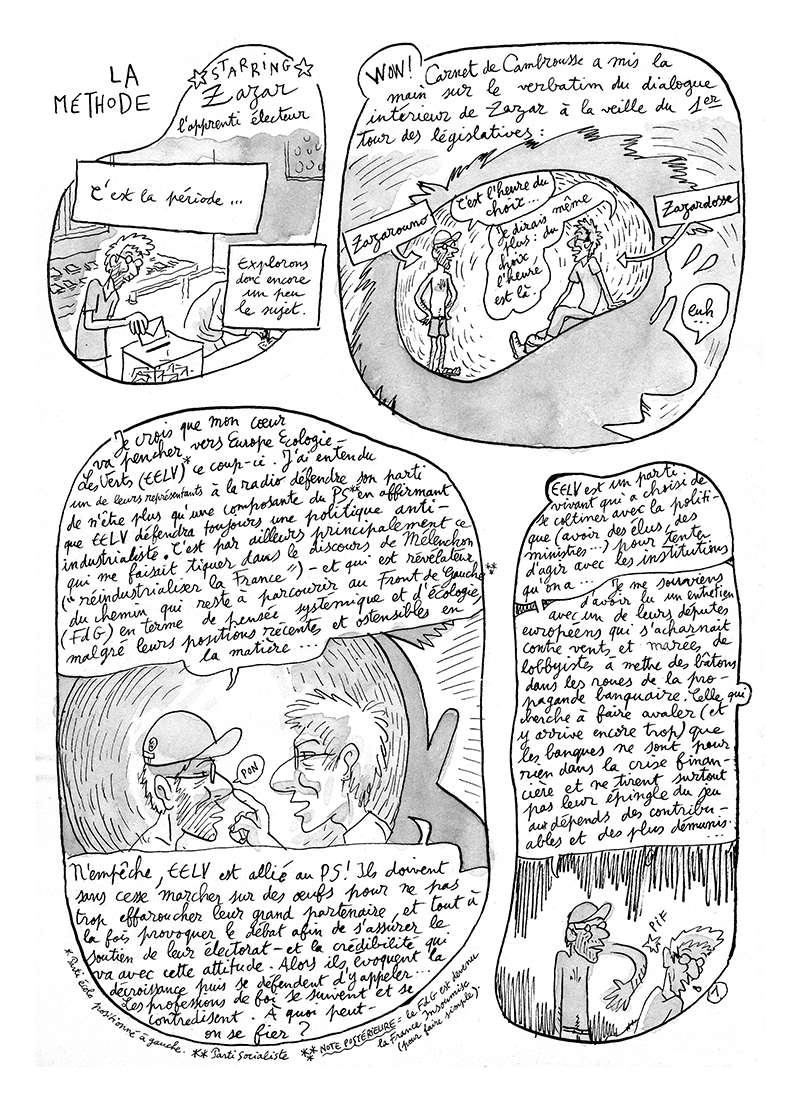 LA
MÉTHODE
STARRING
Zazar
l'apprenti électeur
C'est la période ...
Explorons
donc encore
un peu
le sujet.
WOW!
Carnet de Cambrousse a mis la
main sur le verbatim du dialogue
intérieur de Zazar à la veille du 1er
tour des législatives :
Zazarouno
C'est l'heure du
choix...
Je dirais même
plus : du
choix
l'heure
est là.
Zazardosse
euh
...
Je crois que mon cœur
va pencher vers Europe Ecologie-
Les Verts (EELV)* ce coup-ci. J'ai entendu
un de leurs représentants à la radio défendre son parti
de n'être plus qu'une composante du PS** en affirmant
que EELV défendra toujours une politique anti-
industrialiste. C'est par ailleurs principalement ce
qui me faisait tiquer dans le discours de Mélenchon
("réindustrialiser la France") - et qui est révélateur
du chemin qui reste à parcourir au Front de Gauche***
(FdG) en terme de pensée systémique et d'écologie,
malgré leurs positions récentes et ostensibles en
la matière ...
PON
N'empêche, EELV est allié au PS! Ils doivent
sans cesse marcher sur des œufs pour ne pas
trop effaroucher leur grand partenaire, et tout à
la fois provoquer le débat afin de s'assurer le
soutien de leur électorat - et la crédibilité qui
va avec cette attitude. Alors ils évoquent la
décroissance puis se défendent d'y appeler...
Les professions de foi se suivent et se
contredisent. À quoi peut-
on se fier ?
* Parti écolo positionné à gauche.
** Parti Socialiste
*** NOTE POSTÉRIEURE = le FdG est devenu
la France Insoumise
(pour faire simple).
EELV est un parti
vivant qui a choisi de
se coltiner avec la politi-
que (avoir des élus, des
ministres...) pour tenter
d'agir avec les institutions
qu'on a...
Je me souviens
d'avoir lu un entretien
avec un de leurs députés
européens qui s'acharnait
contre vents et marées de
lobbyistes à mettre des bâtons
dans les roues de la pro-
pagande banquaire. Celle qui
cherche à faire avaler (et
y arrive encore trop) que
les banques ne sont pour
rien dans la crise finan-
cière et ne tirent surtout
pas leur épingle du jeu
aux dépends des contribu-
ables et des plus démunis.
...
PIF
1